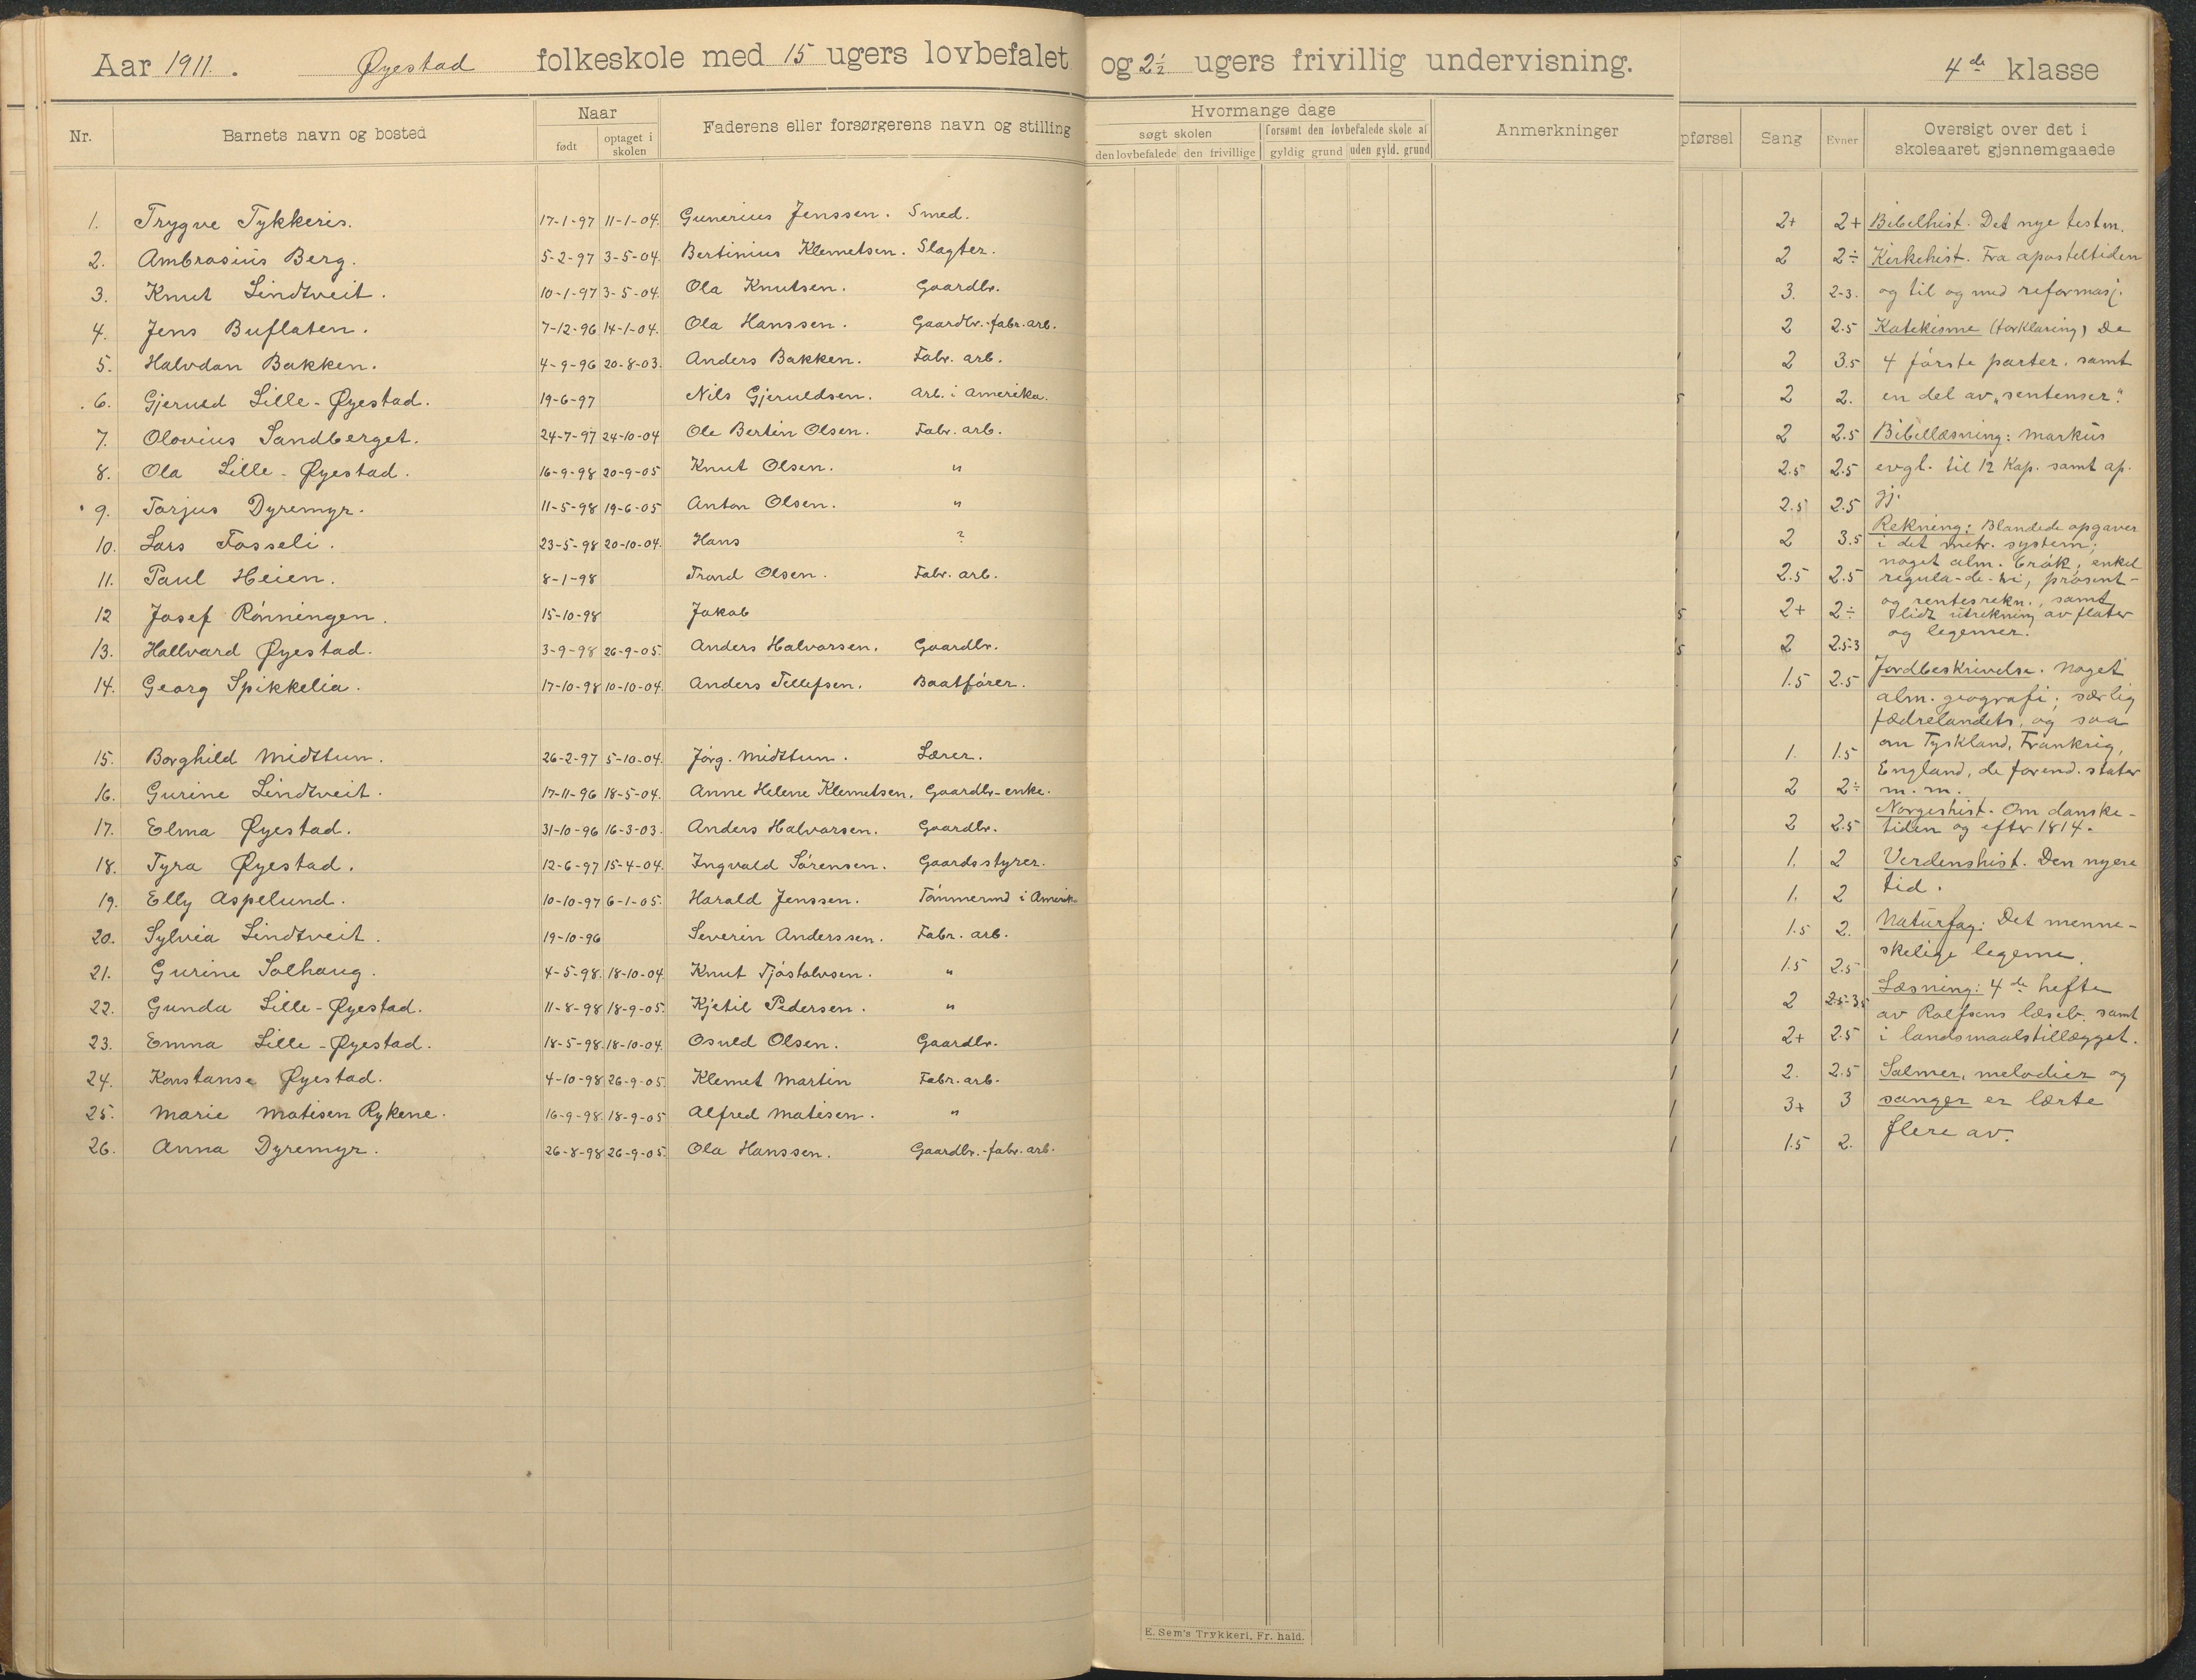 Aar 1911. Øyestad folkeskole med 15 ugers lovbefalet og 2½ ugers frivillig undervisning. 4de klasse
Nr. Barnets navn og bosted Naar født optaget i skolen Faderens eller forsørgerens navn og stilling
Hvormange dage søgt skolen den lovbefalede den frivillige forsømt den lovbefalede skole af gyldig grund uden gyld. grund Anmerkninger
pførsel Sang Evner Oversigt over det i skoleaaret gjennemgaaede
1. Trygve Tykkeris. 17-1-97 11-1-04. Gunerius Jenssen. Smed. 2+ 2+
2. Ambrosius Berg. 5-2-97 3-5-04. Bertinius Klemetsen. Slagter. 2 2÷
3. Knut Lindtveit. 10-1-97 3-5-04. Ola Knutsen. Gaardbr. 3. 2-3.
4. Jens Buflaten. 7-12-96 14-1-04. Ola Hanssen. Gaardbr.-fabr.arb. 2 2.5
5. Halvdan Bakken. 4-9-96 20-8-03. Anders Bakken. Fabr. arb. 2 3.5
6. Gjeruld Lille-Øyestad. 19-6-97 Nils Gjeruldsen. Arb. i Amerika. 2 2.
7. Olovius Sandberget. 24-7-97 24-10-04 Ole Bertin Olsen. Fabr. arb. 2 2.5
8. Ola Lille-Øyestad. 16-9-98 20-9-05 Knut Olsen. " 2.5 2.5
9. Torjus Dyremyr. 11-5-98 19-6-05 Anton Olsen. " 2.5 2.5
10. Lars Fosseli. 23-5-98 20-10-04. Hans ? 2 3.5
11. Paul Heien. 8-1-98 Trond Olsen. Fabr. arb. 2.5 2.5
12 Josef Rönningen. 15-10-98 Jakob 2+ 2÷
13. Hallvard Øyestad. 3-9-98 26-9-05. Anders Halvorsen. Gaardbr. 2 2.5-3
14. Georg Spikkelia. 17-10-98 10-10-04. Anders Tellefsen. Baatförer. 1.5 2.5
15. Borghild Midttun. 26-2-97 5-10-04. Jörg. Midttun. Lærer. 1. 1.5
16. Gurine Lindtveit. 17-11-96 18-5-04. Anne Helene Klemetsen. Gaardbr-enke. 2 2÷
17. Elma Øyestad. 31-10-96 16-3-03. Anders Halvorsen. Gaardbr. 2 2.5
18. Tyra Øyestad. 12-6-97 15-4-04. Ingvald Sörensen. Gaardsstyrer. 1. 2
19. Elly Aspelund. 10-10-97 6-1-05. Harald Jenssen. Tömmermd i Amerik 1. 2
20. Sylvia Lindtveit. 19-10-96 Severin Anderssen. Fabr. arb. 1.5 2.
21. Gurine Solhaug. 4-5-98. 18-10-04 Knut Tjöstolvsen. " 1.5 2.5
22. Gunda Lille-Øyestad. 11-8-98 18-9-05. Kjetil Pedersen. " 2 2.5-3.5
23. Emna Lille-Øyestad. 18-5-98. 18-10-04. Osuld Olsen. Gaardbr. 2+ 2.5
24. Konstanse Øyestad. 4-10-98 26-9-05. Klemet Martin Fabr. arb. 2. 2.5
25. Marie Matisen Rykene. 16-9-98. 18-9-05 Alfred Matisen. " 3+ 3
26. Anna Dyremyr. 26-8-98 26-9-05. Ola Hanssen. Gaardbr.-fabr. arb. 1.5 2.
Bibelhist. Det nye testm.
Kirkehist. Fra aposteltiden
og til og med reformasj.
Katekisme (forklaring) De
4 förste parter, samt
en del av "sentenser".
Bibellæsning: Markus
evgl. til 12 Kap. samt ap.
gj.
Rekning: Blandede opgaver
i det metr. system;
noget alm. brök, enkel
regula-de-tri, prosent-
og rentesrekn., samt
lidt utrekning av flater
og legemer.
Jordbeskrivelse. Noget
alm. geografi; særlig
fædrelandets, og saa
om Tyskland, Frankrig,
England, de forend. stater
m. m.
Norgeshist. Om danske-
tiden og efter 1814.
Verdenshist. Den nyere
tid.
Naturfag: Det menne-
skelige legeme.
Læsning: 4de hefte
av Rolfsens læseb. samt
i landsmaalstillægget.
Salmer, melodier og
sanger er lærte
flere av.
E. Sem's Trykkeri, Fr. hald.